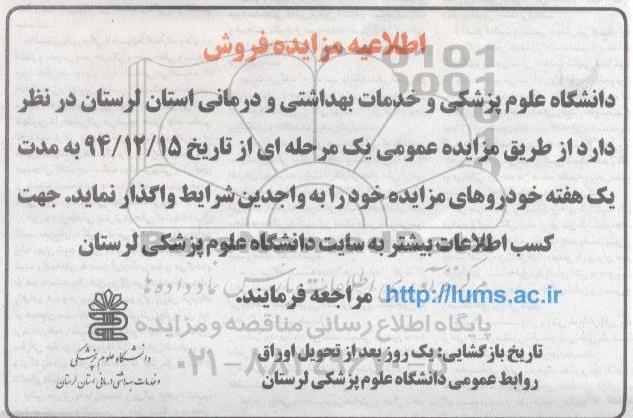 اطلاعیه مزایده فروش
دانشگاه علوم پزشکی و خدمات بهداشتی و درمانی استان لرستان در نظر
دارد از طریق مزایده عمومی یک مرحله ای از تاریخ ۹۴/۱۲/۱۵ به مدت
یک هفته خودروهای مزایده خود را به واجدین شرایط واگذار نماید. جهت
کسب اطلاعات بیشتر به سایت دانشگاه علوم پزشکی لرستان
http://lums.ac.ir مراجعه فرمایند.
پایگاه اطلاع رسانی مناقصه و مزایده
تاریخ بازگشایی: یک روز بعد از تحویل اوراق
روابط عمومی دانشگاه علوم پزشکی لرستان
دانشگاه علوم پزشکی
و خدمات بهداشتی درمانی استان لرستان